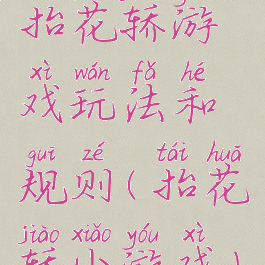 抬花轿游
xì wán fǎ hé
戏玩法和
guī zé tái huā
规则(抬花
jiào xiǎo yóu xì
轿小游戏)